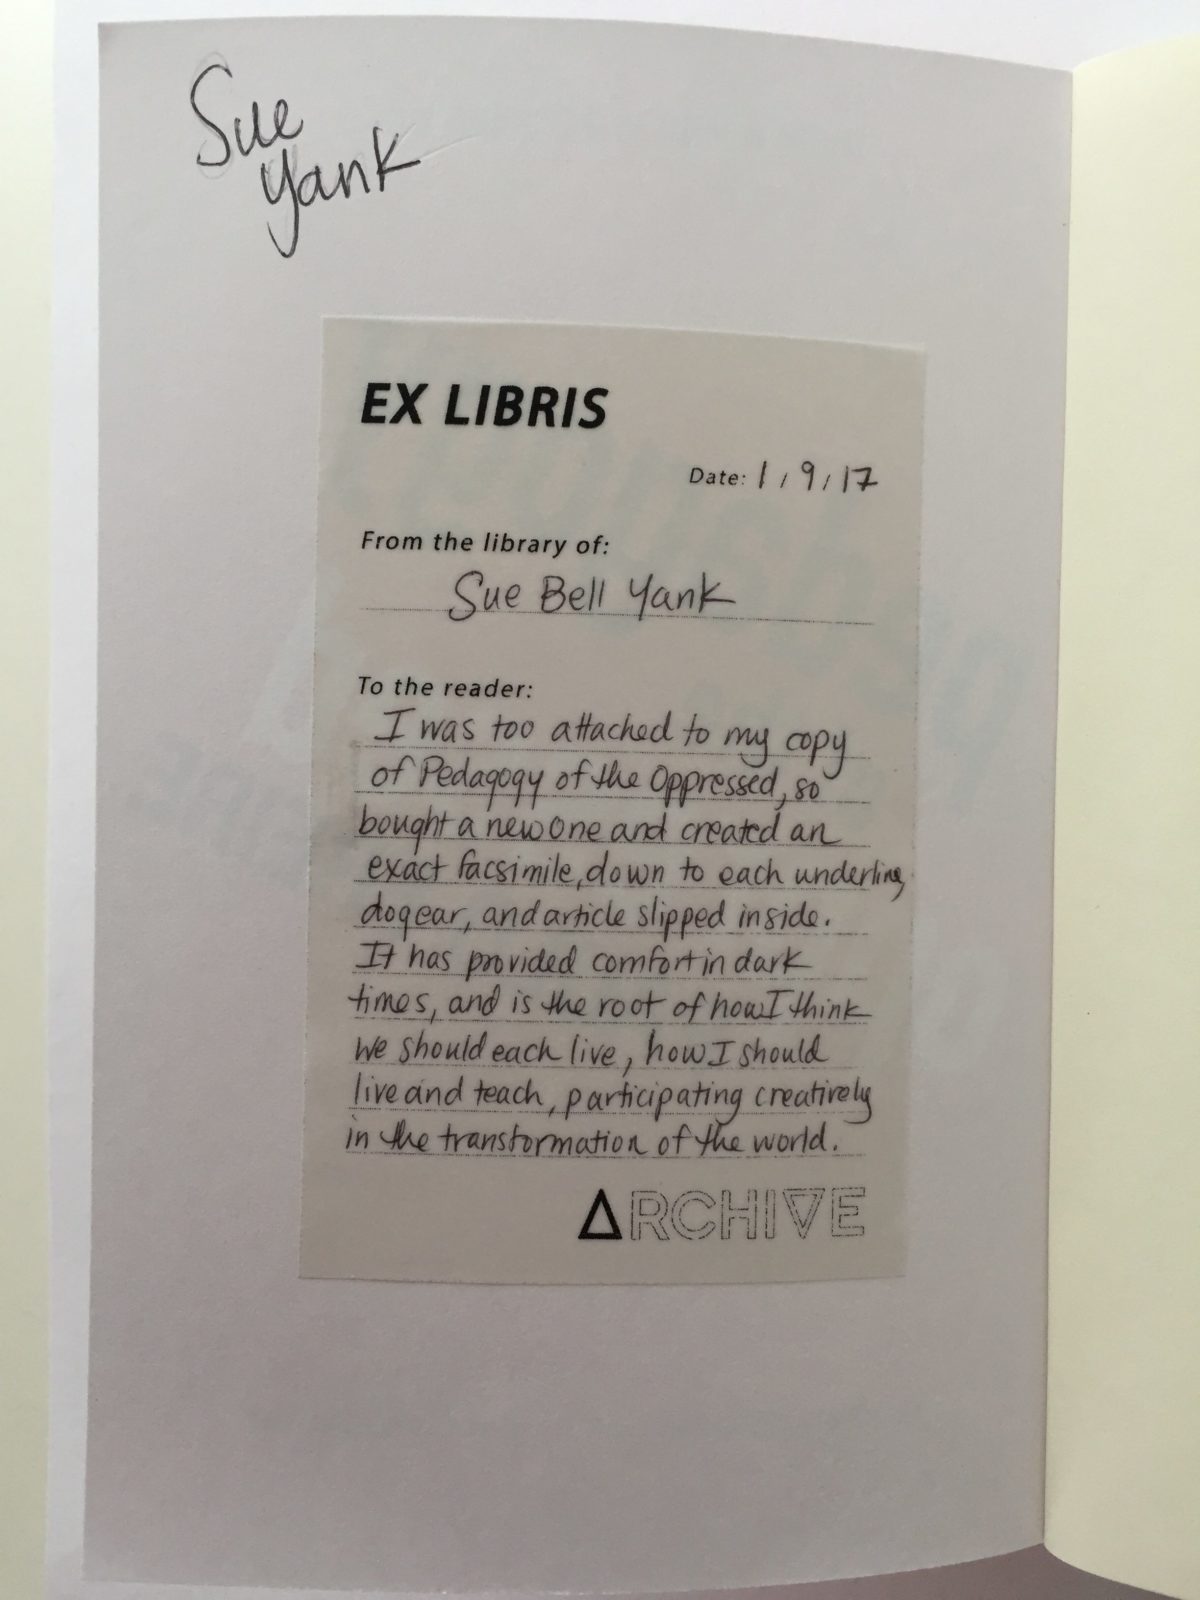 Sue
Yank
EX LIBRIS
Date: 1/9/17
From the library of:
Sue Bell Yank
To the reader:
I was too attached to my copy
of Pedagogy of the Oppressed, so
bought a new one and created an
exact facsimile, down to each underline,
dogear, and article slipped inside.
It has provided comfort in dark
times, and is the root of how I think
we should each live, how I should
live and teach, participating creatively
in the transformation of the world.
ARCHIVE